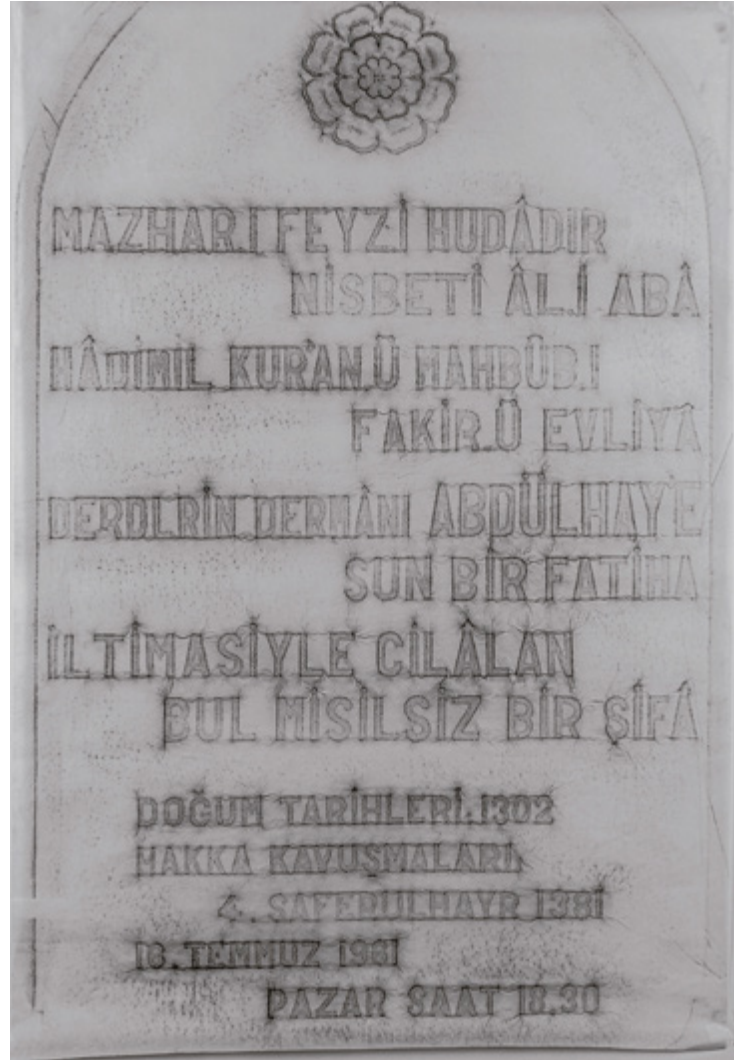 MAZHAR.I FEYZ.İ HUDÂDIR
NİSBETİ ÂL.İ ABÂ
HÂDİMİL KUR'AN.Ü MAHBÛB.I
FAKİR.Ü EVLİYÂ
DERDLRİN DERMÂNI ABDÜLHAY'E
SUN BİR FATİHA
İLTİMASİYLE CİLÂLAN
BUL MİSİLSİZ BİR ŞİFÂ
DOĞUM TARİHLERİ.1302
HAKKA KAVUŞMALARI
4. SAFERÜLHAYR 1381
16.TEMMUZ 1961
PAZAR SAAT 18.30